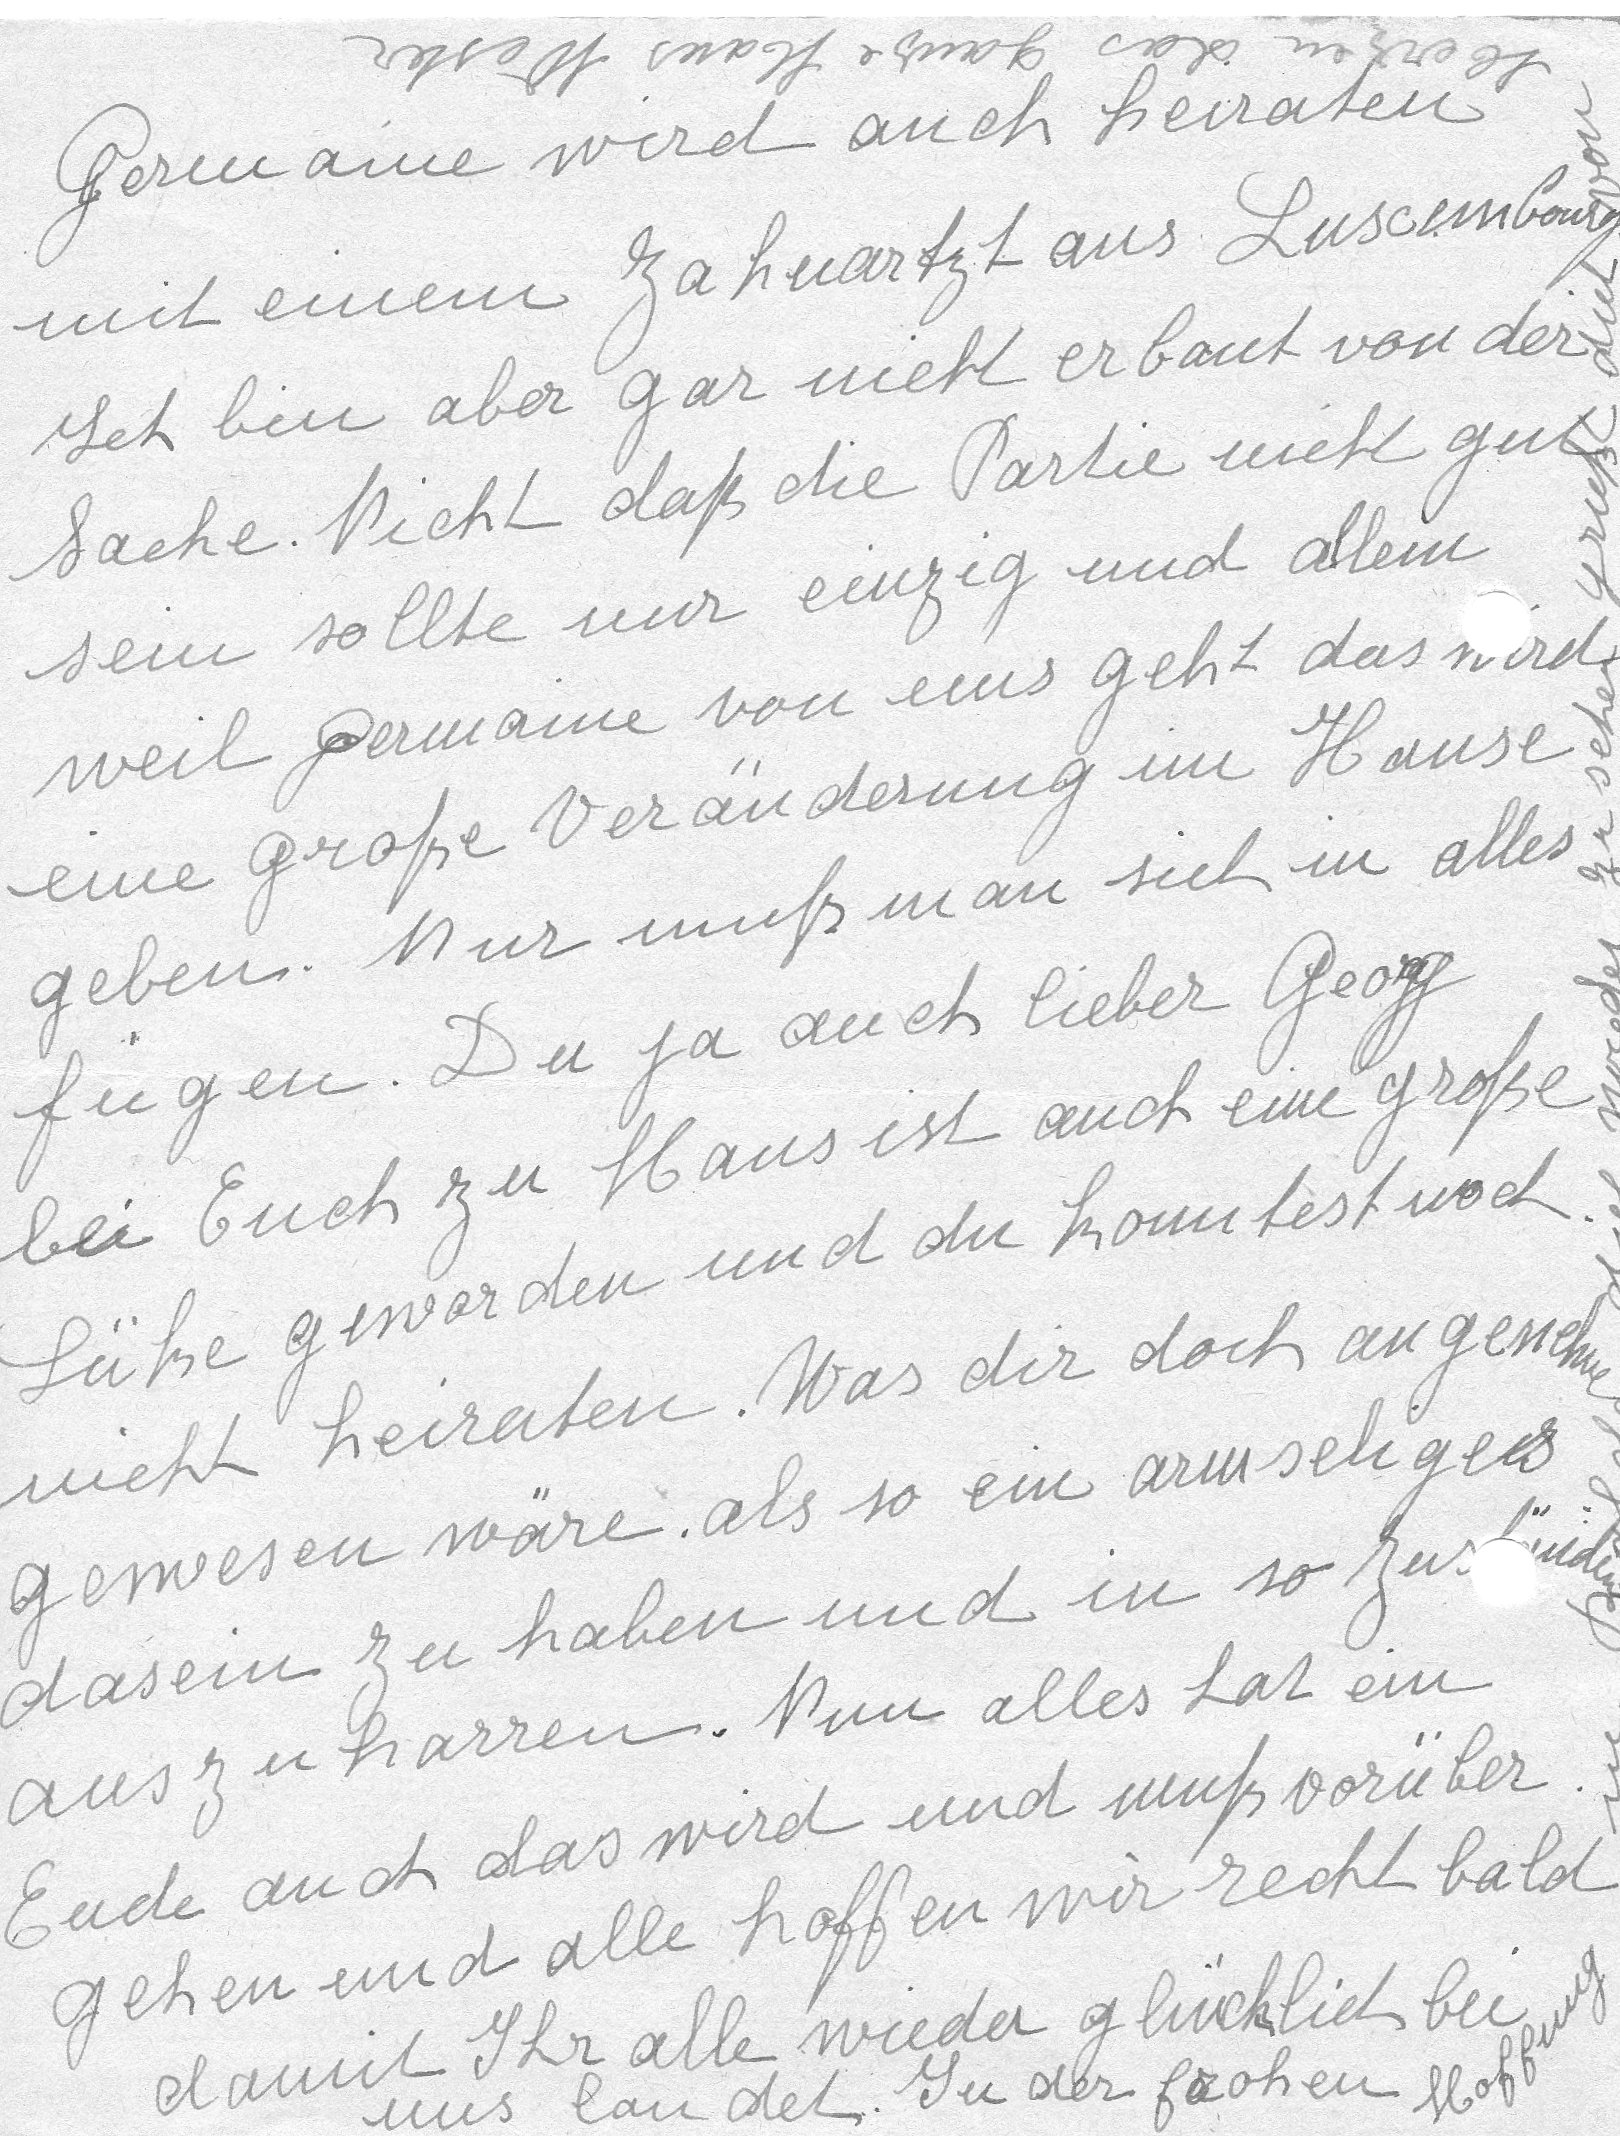 Germaine wird auch heiraten
mit einem Zahnartzt aus Luxcembourg
Ich bin aber gar nicht erbaut von der
Sache. Nicht daß die Partie nicht gut
sein sollte nur einzig und allein
weil Germaine von uns geht das wird
eine große Veränderung im Hause
geben. Nur muß man sich in alles
fügen. Du ja auch lieber Georg
bei Euch zu Haus ist auch eine große
Lüke geworden und du konntest noch
nicht heiraten. Was dir doch angenehme
gewesen wäre. als so ein armseliges
dasein zu haben und in so zuständen
auszuharren. Nun alles hat ein
Ende auch das wird und muß vorüber
gehen und alle hoffen wir recht bald
damit Ihr alle wieder glücklich bei
uns landet. In der frohen Hoffnung
dich wieder zu sehen grüßt dich von
Herzen das ganze Haus Wester